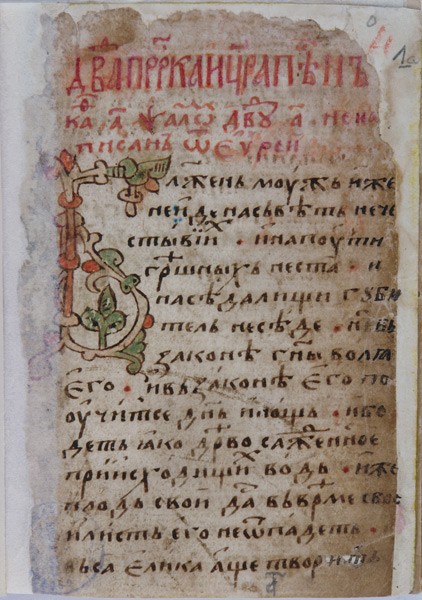 дв҃дапрⷪ҇ркаицр҃ѧпѣⷭ҇нъ
каѳⷭ҇ а҃ ѱалⷪ҇ дв҃ду а҃ нена
писанъ ѿ еврей
Блженъ моужь иже
неиде насьвѣть нече
стывїиⷯ · инапоути
грѣшныⷯ неста · и
насѣдалищи губи
тель неседе · нѫ вь
законѣ гн҃ы волꙗ
его · ивьзаконѣ его по
оучитсе дн҃ь инощь · ибꙋ
деть ꙗко дрѣво сажⷣенное
приисходищиⷯ водь · иже
плодь свой дасть вьврѣме свое
илисть его неѿпадеть · и
вьса елика аще творить